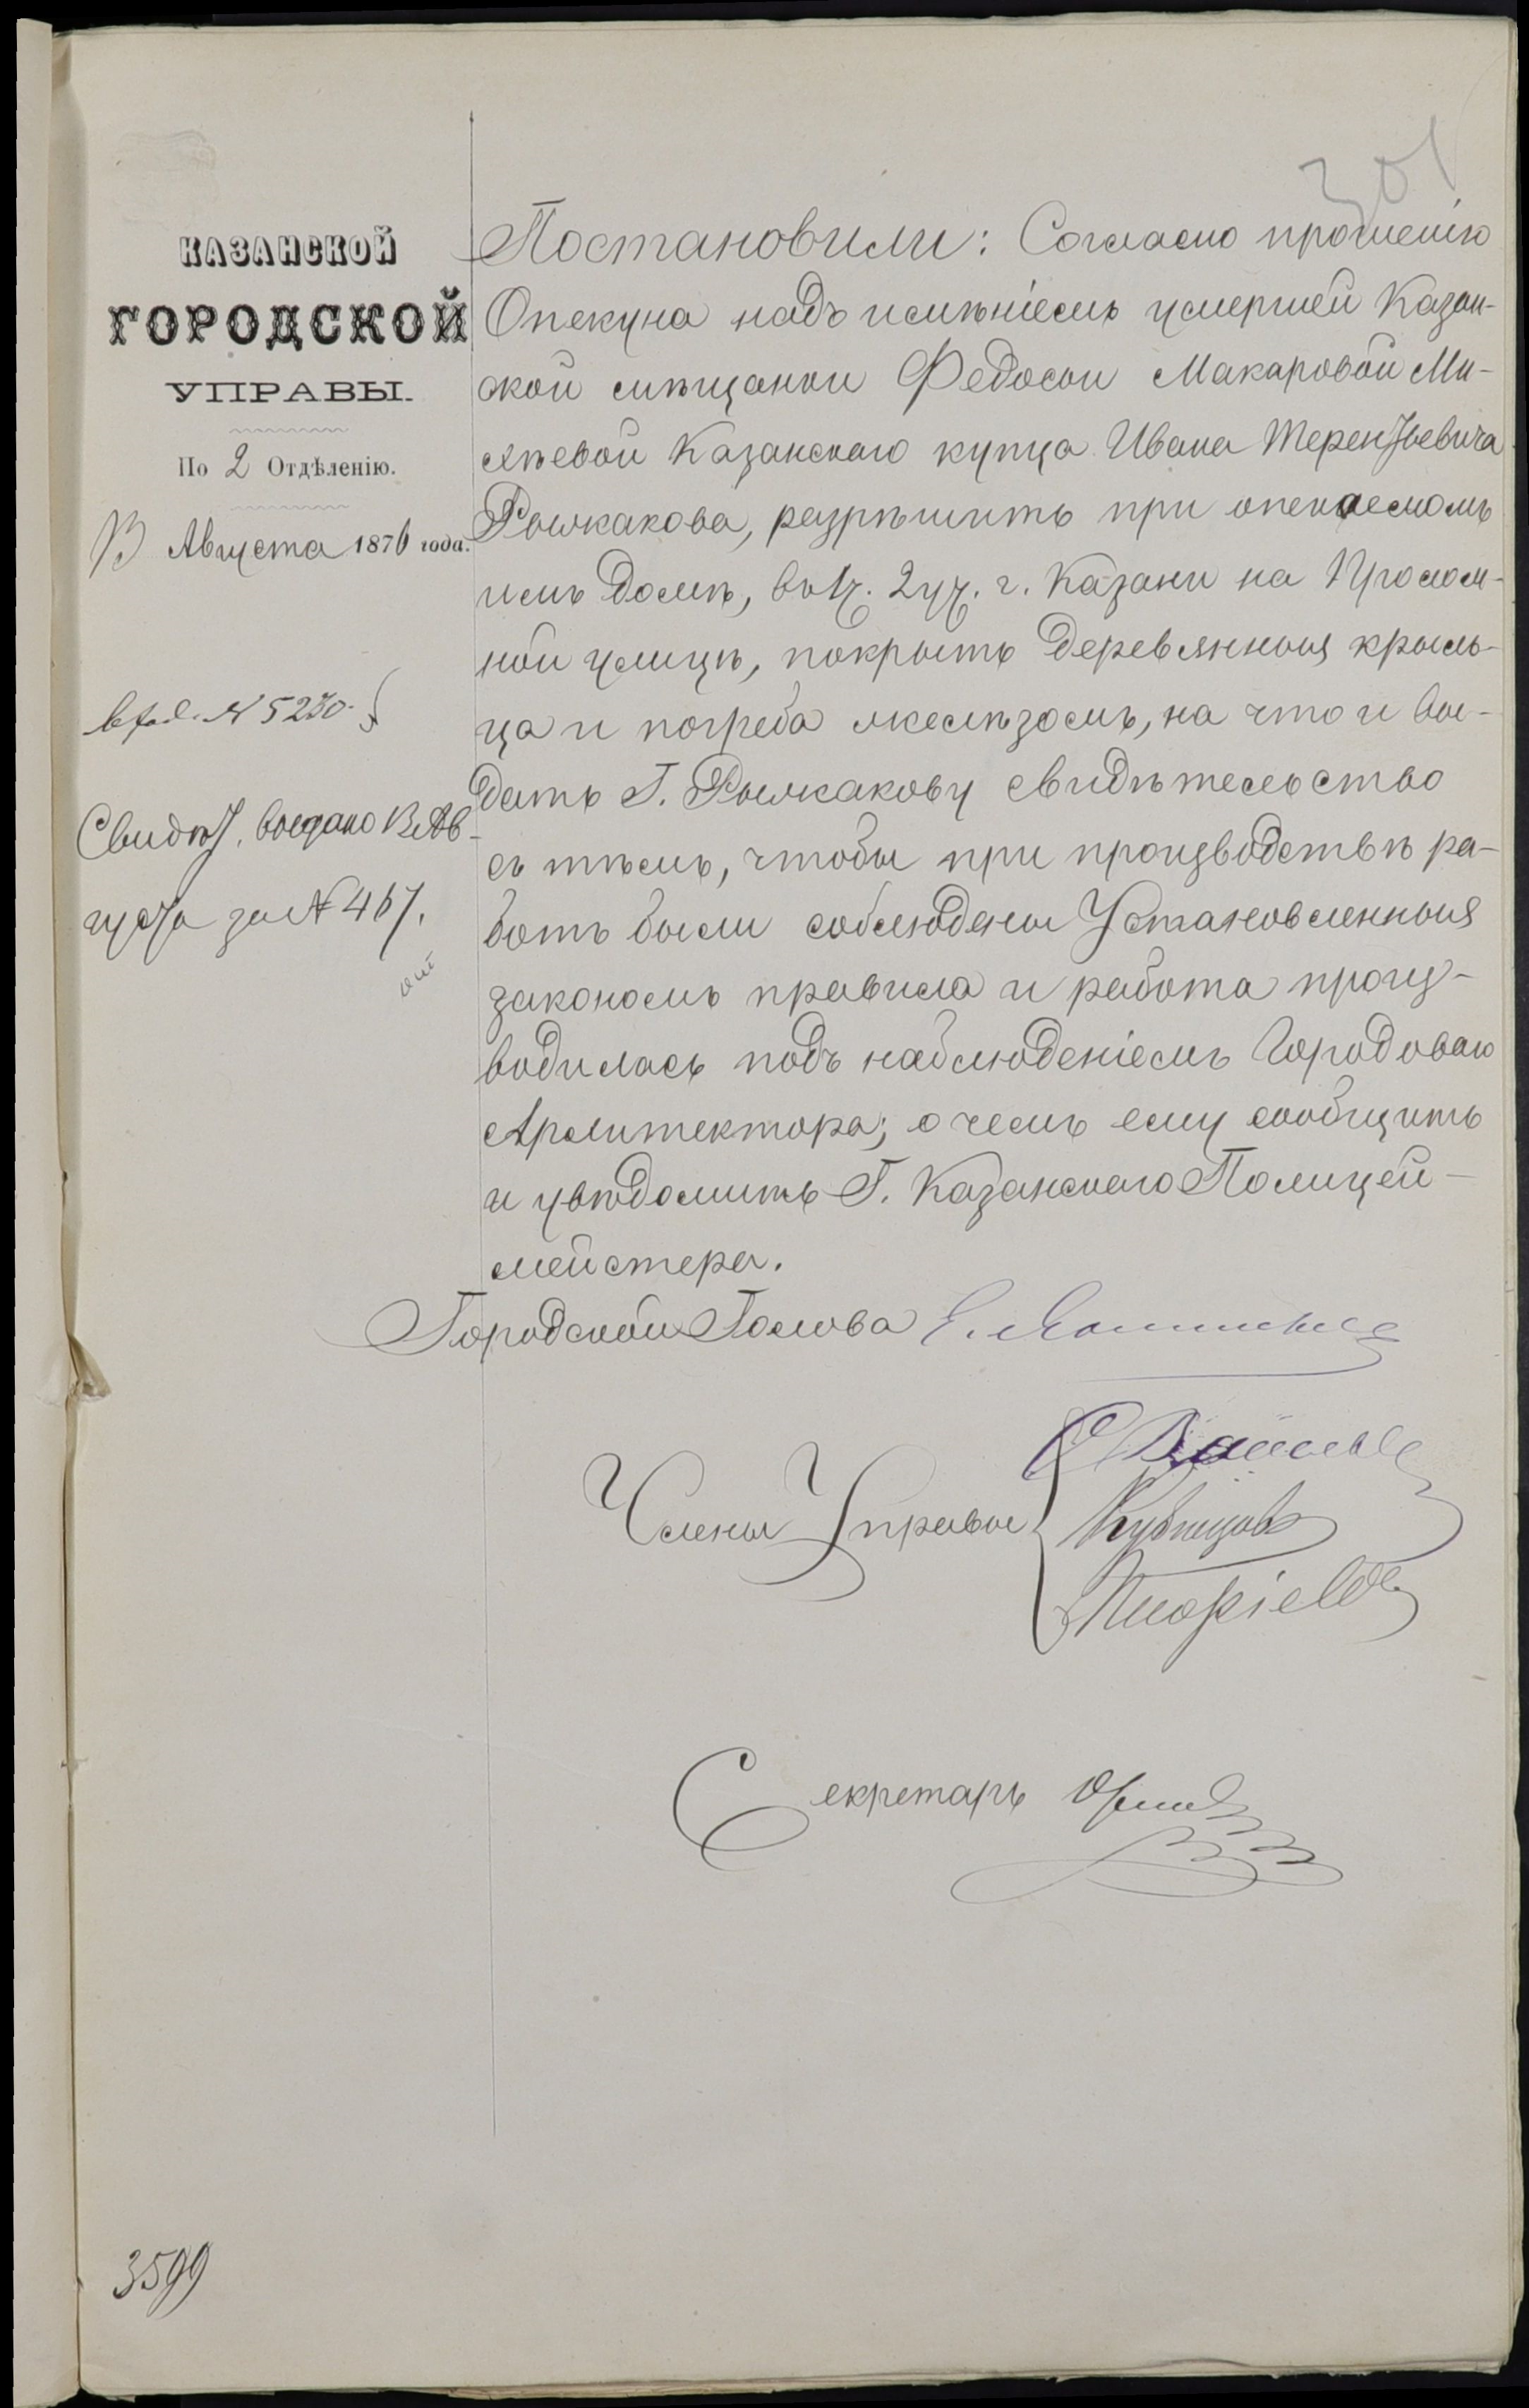 301
КАЗАНСКОЙ
ГОРОДСКОЙ
УПРАВЫ.
По 2 Отдѣленію.
13 Августа 1876 года.
вход. № 5230.
Свидѣт. выдано 13 Ав-
густа за № 467.
Постановили: Согласно прошенію
Опекуна надъ имѣніемъ умершей Казан-
ской мѣщанки Федосьи Макаровой Ми-
лѣевой Казанскаго купца Ивана Терентьевича
Рыжакова, разрѣшить при опекаемомъ
имъ домѣ, въ 1 ч. 2 уч. г. Казани на Пролом-
ной улицѣ, покрыть деревянныя крыль-
ца и погреба желѣзомъ, на что и вы-
дать Г. Рыжакову свидѣтельство
съ тѣмъ, чтобы при производствѣ ра-
ботъ были соблюдены Установленныя
закономъ правила и работа произ-
водилась подъ наблюденіемъ Городоваго
Архитектора; о чемъ ему сообщить
и увѣдомить Г. Казанскаго Полицей-
мейстера.
Городской Голова
Члены Управы
Кузнецовъ
Секретарь
3599